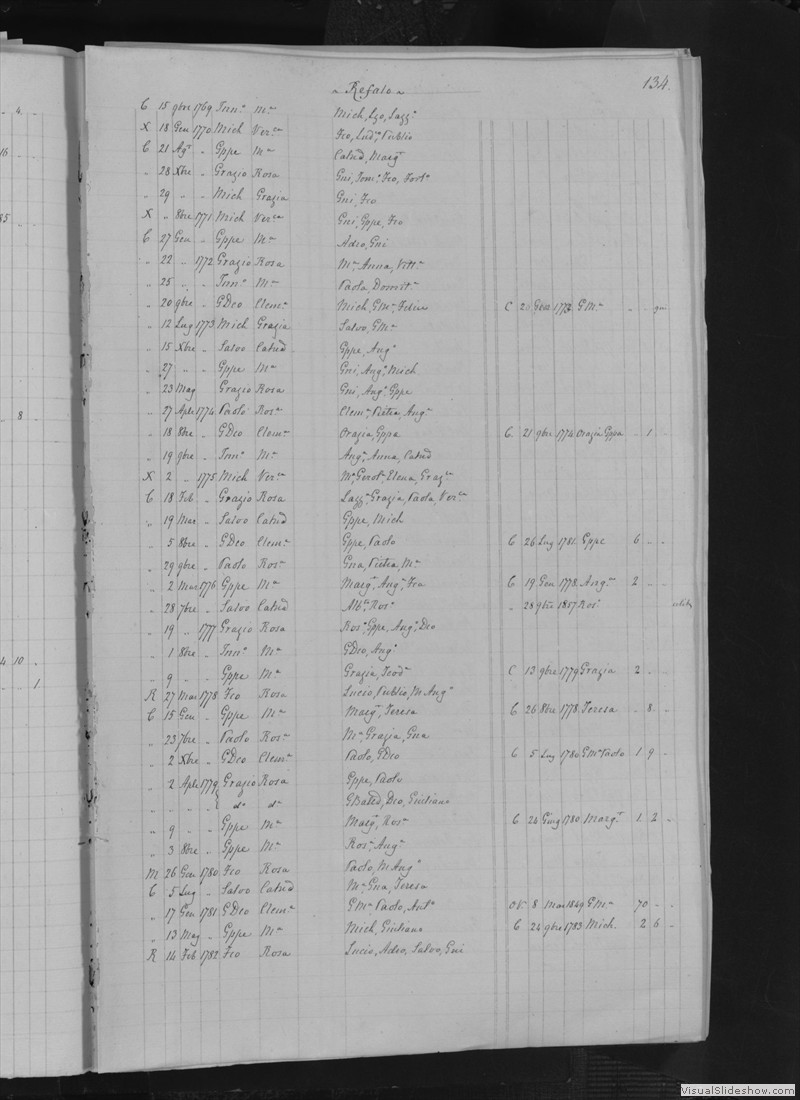 134.
" Refalo "
C 15 9bre 1769 Inn.a M.a Mich, Lzo, Lazz.a
X 18 Gen 1770 Mich Ver.ca Fco, Lud.o, Publio
C 21 Ag.t " Gppe M.a Catnd, Marg.t
" 28 Xbre " Grazio Rosa Gni, Tom.o, Fco, Fort.o
" 29 " " Mich Grazia Gni, Fco
X " 8bre 1771 Mich Ver.ca Gni, Gppe, Fco
C 27 Gen " Gppe M.a Adeo, Gni
" 22 " 1772 Grazio Rosa M.a Anna, Vitt.a
" 25 " " Inn.o M.a Paola, Domit.a
" 20 9bre " GDeo Clem.a Mich, GM.a, Felice C 2 1772 GM.a " "
" 12 Lug 1773 Mich Grazia Salvo, GM.a
" 15 Xbre " Salvo Catnd Gppe, Aug.o
" 27 " " Gppe M.a Gni, Aug.o, Mich
" 23 Mag Grazio Rosa Gni, Aug.o, Gppe
" 27 Aple 1774 Paolo Ros.a Clem.a, Pietra, Aug.a
" 18 8bre " GDeo Clem.a Orazia, Gppa C. 21 9bre 1774 Orazia Gppa " 1 "
" 19 9bre " Inn.o M.a Ang.a, Anna, Catnd
X 2 " 1775 Mich Ver.ca M.a Gerot.a, Elena, Graz.a
C 18 Feb " Grazio Rosa Lazz.a, Grazia, Paola, Ver.ca
" 19 Mar " Salvo Catnd Gppe, Mich
" 5 8bre " GDeo Clem.a Gppe, Paolo C 26 Lug 1781. Gppe 6 " "
" 29 9bre " Paolo Ros.a Gna, Pietra, M.a
" 2 Mar 1776 Gppe M.a Marg.t, Ang.a, Fca C 19 Gen 1778. Ang.a 2 " "
" 28 7bre " Salvo Catnd Alb.a, Ros.a " 28 9bre 1807 Ros.a
" 19 " 1777 Grazio Rosa Ros.o, Gppe, Aug.o, Deo
" 1 8bre " Inn.o M.a GDeo, Aug.o
" 9 " " Gppe M.a Grazia, Teod.a C 13 9bre 1779 Grazia 2 " "
R 27 Mar 1778 Fco Rosa Lucio, Publio, M Aug.o
C 15 Gen " Gppe M.a Marg.t, Teresa C 26 8bre 1778. Teresa " 8 "
" 23 7bre " Paolo Ros.a M.a Grazia, Gna
" 2 Xbre " GDeo Clem.a Paolo, GDeo C 5 Lug 1780 GM.a Paolo 1 9 "
" 2 Aple 1779 Grazio Rosa Gppe, Paolo
" " " " d.o d.a GBatta, Deo, Giuliano
" 9 " " Gppe M.a Marg.t, Ros.a C 24 Giug 1780 Marg.t 1 2 "
" 3 8bre " Gppe M.a Ros.a, Aug.o
M 26 Gen 1780 Fco Rosa Paolo, M Aug.o
C 5 Lug " Salvo Catnd M.a Gna, Teresa
" 17 Gen 1781 GDeo Clem.a GM.a, Paolo, Ant.o 8 Mar 1849 GM.a 70 " "
" 13 Mag " Gppe M.a Mich, Giuliano C 24 9bre 1783 Mich. 2 6 "
R 14 Feb 1782 Fco Rosa Lucio, Adeo, Salvo, Gni
4.
16
85
8
4 10
1
VisualSlideshow.com